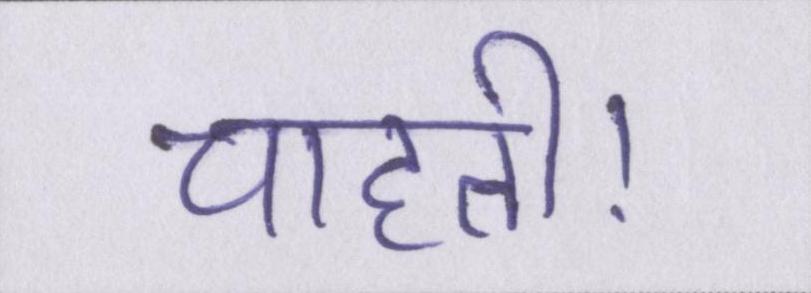 चाहती!